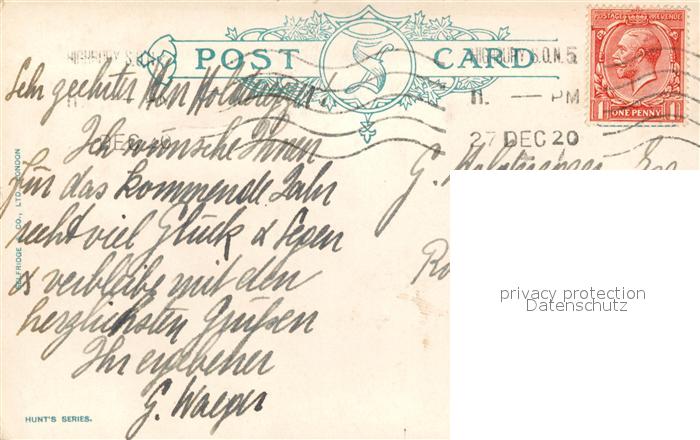 POST CARD
HIGHBURY S.O.N.5
11. — PM
27 DEC 20
POSTAGE REVENUE
1 ONE PENNY 1
Sehr geehrter Herr Holderegger!
Ich wünsche Ihnen
für das kommende Jahr
recht viel Glück & Segen
& verbleibe mit den
herzlichsten Grüßen
Ihr ergebener
G.
G. Esq
SELFRIDGE & CO., LTD. LONDON
HUNT'S SERIES.
privacy protection
Datenschutz